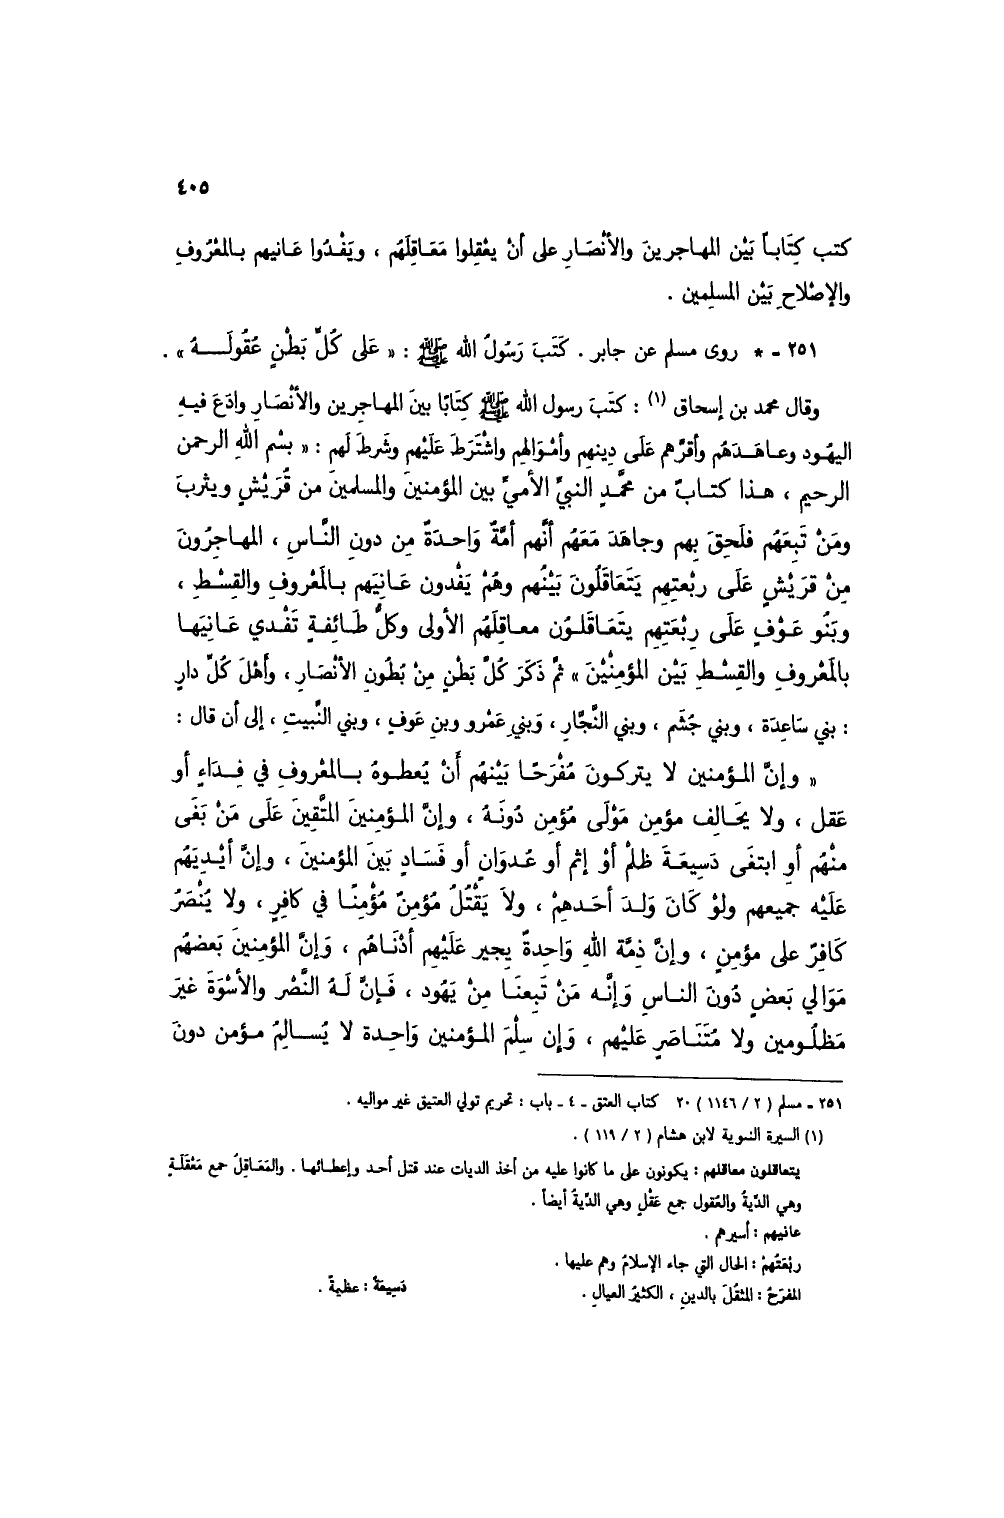 ٤٠٥
كتب كِتَاباً بَيْن المهاجرينَ والأنْصَارِ على أنْ يعْقِلوا مَعَاقِلَهُم ، ويَفْدُوا عَانيهم بالمَعْرُوفِ
والإصْلاحِ بَيْن المسلِمين .
٢٥١ - * روى مسلم عن جابر . كَتَبَ رَسُولُ الله ﷺ : « عَلى كُلِّ بَطْنٍ عُقُولَهُ » .
وقال محمد بن إسحاق (١) : كتَبَ رسول الله ﷺ كِتَابًا بينَ المهاجرين والأنْصَارِ وادَعَ فيهِ
اليهُود وعاهَدَهُم وأقرَّهم عَلَى دِينهم وأمْوَالهِم واشْتَرَطَ عَلَيْهم وشَرطَ لَهم : « بسْم اللهِ الرحمن
الرحيم ، هذا كتابٌ من محمَّدٍ النبيِّ الأميِّ بين المؤمنينَ والمسلمينَ من قُرَيْشٍ ويثربَ
ومَنْ تَبِعَهُم فلَحِقَ بهم وجاهَدَ مَعَهُم أنَّهم أمَّةٌ وَاحدَةٌ مِن دونِ النَّاسِ ، المهاجرُونَ
مِنْ قرَيْشٍ عَلَى ربْعتِهِم يَتَعَاقَلُونَ بَيْنُهم وهُمْ يَفْدون عَانِيَهم بالمَعْروفِ والقِسْطِ ،
وبَنُو عَوْفٍ عَلَى رِبْعَتِهِم يتَعَاقَلوُن معاقلَهُم الأولى وكلُّ طَائِفةٍ تَفْدي عَانِيَها
بالمَعْروفِ والقِسْطِ بَيْن المؤمِنْيْنَ » ثمَّ ذَكَرَ كُلَّ بَطْنٍ مِنْ بُطُونِ الأنْصَارِ ، وأهْلَ كُلِّ دارٍ
: بني سَاعِدَة ، وبني جُشَم ، وبني النَّجَّارِ ، وَبني عَمْرو وبنِ عَوفٍ ، وبني النَّبيتِ ، إلى أن قال :
« وإنَّ المؤمنين لا يتركونَ مُفْرَحًا بَيْنهُم أَنْ يُعطوهُ بالمعْروفِ في فِدَاءٍ أو
عَقل ، ولا يحَالِف مؤمِن مَوْلَى مُؤمِن دُونَهُ ، وإنَّ المؤمِنينَ المتَّقِينَ عَلَى مَنْ بَغَى
منْهُم أو ابتغَى دَسِيعَةَ ظلمْ أوْ إثم أو عُدوَانٍ أو فَسَادٍ بَينَ المؤمنينَ ، وإنَّ أيْدِيَهُم
عَلَيْه جميعهم ولوْ كَانَ وَلدَ أحَدهمْ ، ولاَ يَقْتُلُ مُؤمِنٌ مُؤْمِنًا في كافِرٍ ، ولا يُنْصَرُ
كَافِرٌ على مؤمنٍ ، وإنَّ ذِمَّة اللهِ وَاحدةٌ يجير عَلَيْهِم أدْنَاهُم ، وَإنَّ المؤمِنينَ بَعضهُم
مَوَالي بَعضٍ دُونَ الناسِ وَإنَّه مَنْ تَبِعنَا مِنْ يَهُود ، فَإنَّ لَهُ النَّصْر والأسْوَةَ غيرَ
مَظلُومين ولا مُتَنَاصَرٍ عَلَيْهم ، وَإن سِلْمَ المؤمنين وَاحِدة لا يُسالِمُ مؤمن دونَ
٢٥١ - مسلم ( ٢ / ١١٤٦ ) ٢٠ كتاب العتق - ٤ - باب : تحريم تولي العتيق غير مواليه .
(١) السيرة النبوية لابن هشام ( ٢ / ١١٩ ) .
يتعاقلون معاقلهم : يكونون على ما كانوا عليه من أخذ الديات عند قتل أحد وإعطائها . والمَعَاقِلُ جمع مَعْقَلَةٍ
وهي الدِّيةُ والعُقول جمع عَقْلٍ وهي الدِّيةُ أيضاً .
عانيهم : أسيرهم .
ربْعَتُهمْ : الحال التي جاء الإسلامُ وهم عليها .
المفرَحُ : المثقَلَ بالدينِ ، الكثيرُ العيالِ .
دَسِيعَةُ : عظيةً .